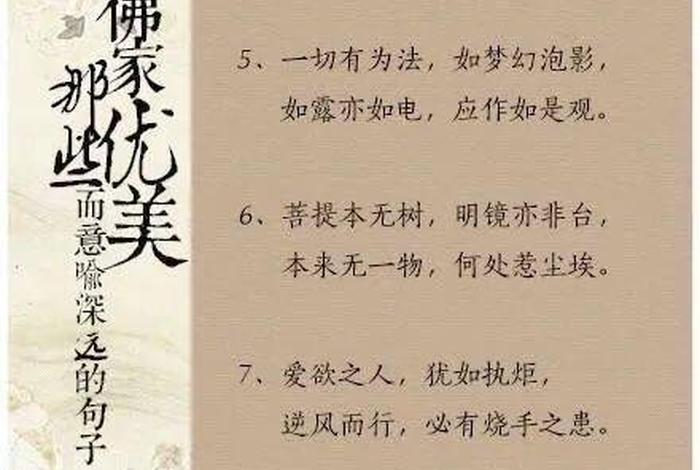 佛家
那些优美
而意喻深远的句子
5、一切有为法，如梦幻泡影，
如露亦如电，应作如是观。
6、菩提本无树，明镜亦非台，
本来无一物，何处惹尘埃。
7、爱欲之人，犹如执炬，
逆风而行，必有烧手之患。